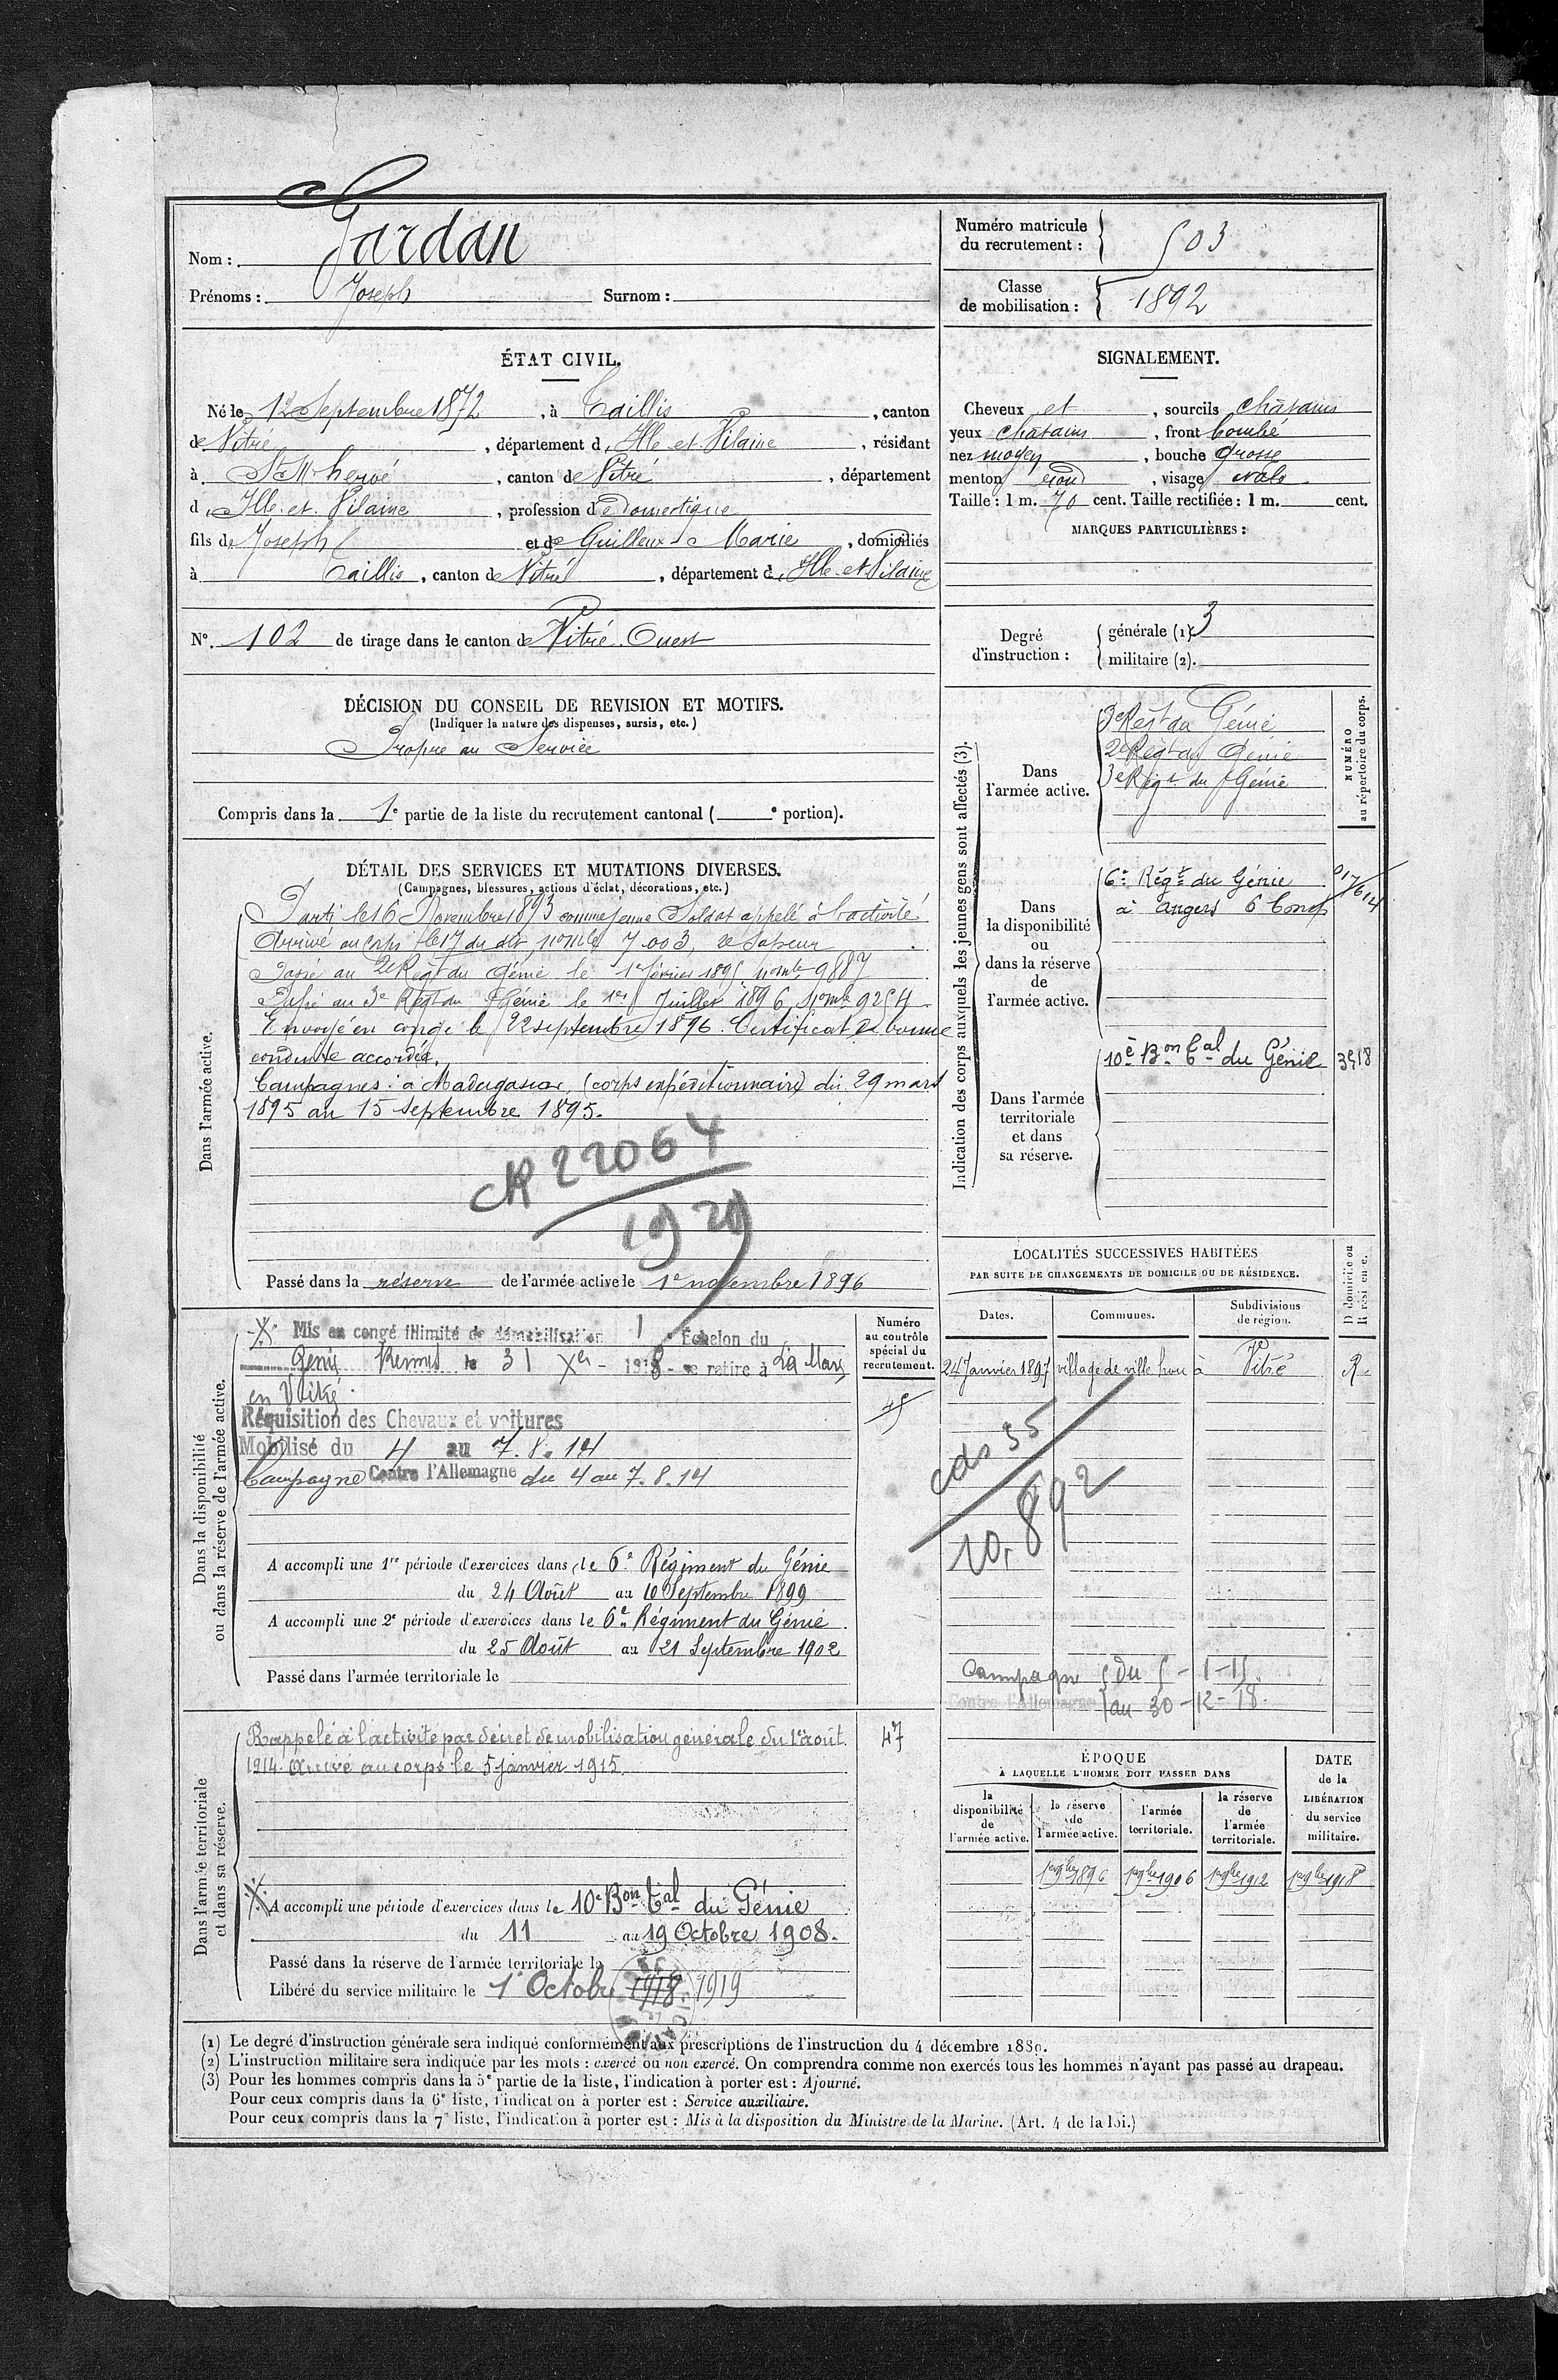 Nom : Gardan
Prénoms : Joseph Surnom :
Numéro matricule du recrutement : 503
Classe de mobilisation : 1892
ÉTAT CIVIL.
Né le 12 Septembre 1872, à Taillis, canton
de Vitré, département d'Ille et Vilaine, résidant
à St M'hervé, canton de Vitré, département
d'Ille et Vilaine, profession de Domestique
fils de Joseph et de Guilleux Marie, domiciliés
à Taillis, canton de Vitré, département d'Ille et Vilaine
N° 102 de tirage dans le canton de Vitré Ouest
SIGNALEMENT.
Cheveux et, sourcils châtains
yeux châtains, front bombé
nez moyen, bouche grosse
menton rond, visage ovale
Taille : 1 m. 70 cent. Taille rectifiée : 1 m. cent.
MARQUES PARTICULIÈRES :
Degré d'instruction : générale (1). 3
militaire (2).
DÉCISION DU CONSEIL DE REVISION ET MOTIFS.
(Indiquer la nature des dispenses, sursis, etc.)
Propre au Service
Compris dans la 1e partie de la liste du recrutement cantonal ( e portion).
DÉTAIL DES SERVICES ET MUTATIONS DIVERSES.
(Campagnes, blessures, actions d'éclat, décorations, etc.)
Dans l'armée active.
Parti le 16 Novembre 1893 comme jeune Soldat appelé à l'activité
Arrivé au corps le 17 du dit, no mle 7003, 2e Sapeur
Passé au 2e Régt du Génie le 1er février 1895 no mle 9887
Passé au 3e Régt du Génie le 1er Juillet 1896, no mle 9254
Envoyé en congé le 22 septembre 1896. Certificat de bonne
conduite accordé.
Campagnes : à Madagascar, (corps expéditionnaire) du 29 mars
1895 au 15 septembre 1895.
CR 22064
1929
Passé dans la réserve de l'armée active le 1er novembre 1896
Indication des corps auxquels les jeunes gens sont affectés (3).
NUMÉRO au répertoire du corps.
Dans l'armée active.
3e Régt du Génie
2e Régt du Génie
3e Régt du Génie
Dans la disponibilité ou dans la réserve de l'armée active.
6e Régt du Génie
à Angers
Dans l'armée territoriale et dans sa réserve.
10e Bon Cal du Génie 3518
LOCALITÉS SUCCESSIVES HABITÉES
PAR SUITE DE CHANGEMENTS DE DOMICILE OU DE RÉSIDENCE.
D domicile ou R résidence.
Dates. Communes. Subdivisions de région.
24 Janvier 1897 village de ville hou à Vitré R
cds 35
10.892
Campagne du 5-1-15
Contre l'Allemagne au 30-12-18.
Dans la disponibilité ou dans la réserve de l'armée active.
Numéro au contrôle spécial du recrutement.
Mis en congé illimité de démobilisation 1 Échelon du
Génie Rennes le 31 Xer 1918 se retire à La Mars
en Vitré.
45
Réquisition des Chevaux et voitures
Mobilisé du 4 au 7.8.14
Campagne Contre l'Allemagne du 4 au 7.8.14
A accompli une 1re période d'exercices dans le 6e Régiment du Génie
du 24 Août au 10 Septembre 1899
A accompli une 2e période d'exercices dans le 6e Régiment du Génie
du 25 Août au 21 Septembre 1902
Passé dans l'armée territoriale le
Dans l'armée territoriale et dans sa réserve.
Rappelé à l'activité par décret de mobilisation générale du 1er août
1914. Arrivé au corps le 5 janvier 1915.
47
A accompli une période d'exercices dans le 10e Bon Cal du Génie
du 11 au 19 Octobre 1908.
Passé dans la réserve de l'armée territoriale le
Libéré du service militaire le 1er Octobre 1918 1919
ÉPOQUE
À LAQUELLE L'HOMME DOIT PASSER DANS
la disponibilité de l'armée active.
la réserve de l'armée active.
l'armée territoriale.
la réserve de l'armée territoriale.
DATE de la LIBÉRATION du service militaire.
1er 9bre 1896 1er 9bre 1906 1er 9bre 1912 1er 9bre 1918
(1) Le degré d'instruction générale sera indiqué conformément aux prescriptions de l'instruction du 4 décembre 1889.
(2) L'instruction militaire sera indiquée par les mots : exercé ou non exercé. On comprendra comme non exercés tous les hommes n'ayant pas passé au drapeau.
(3) Pour les hommes compris dans la 5e partie de la liste, l'indication à porter est : Ajourné.
Pour ceux compris dans la 6e liste, l'indication à porter est : Service auxiliaire.
Pour ceux compris dans la 7e liste, l'indication à porter est : Mis à la disposition du Ministre de la Marine. (Art. 4 de la loi.)